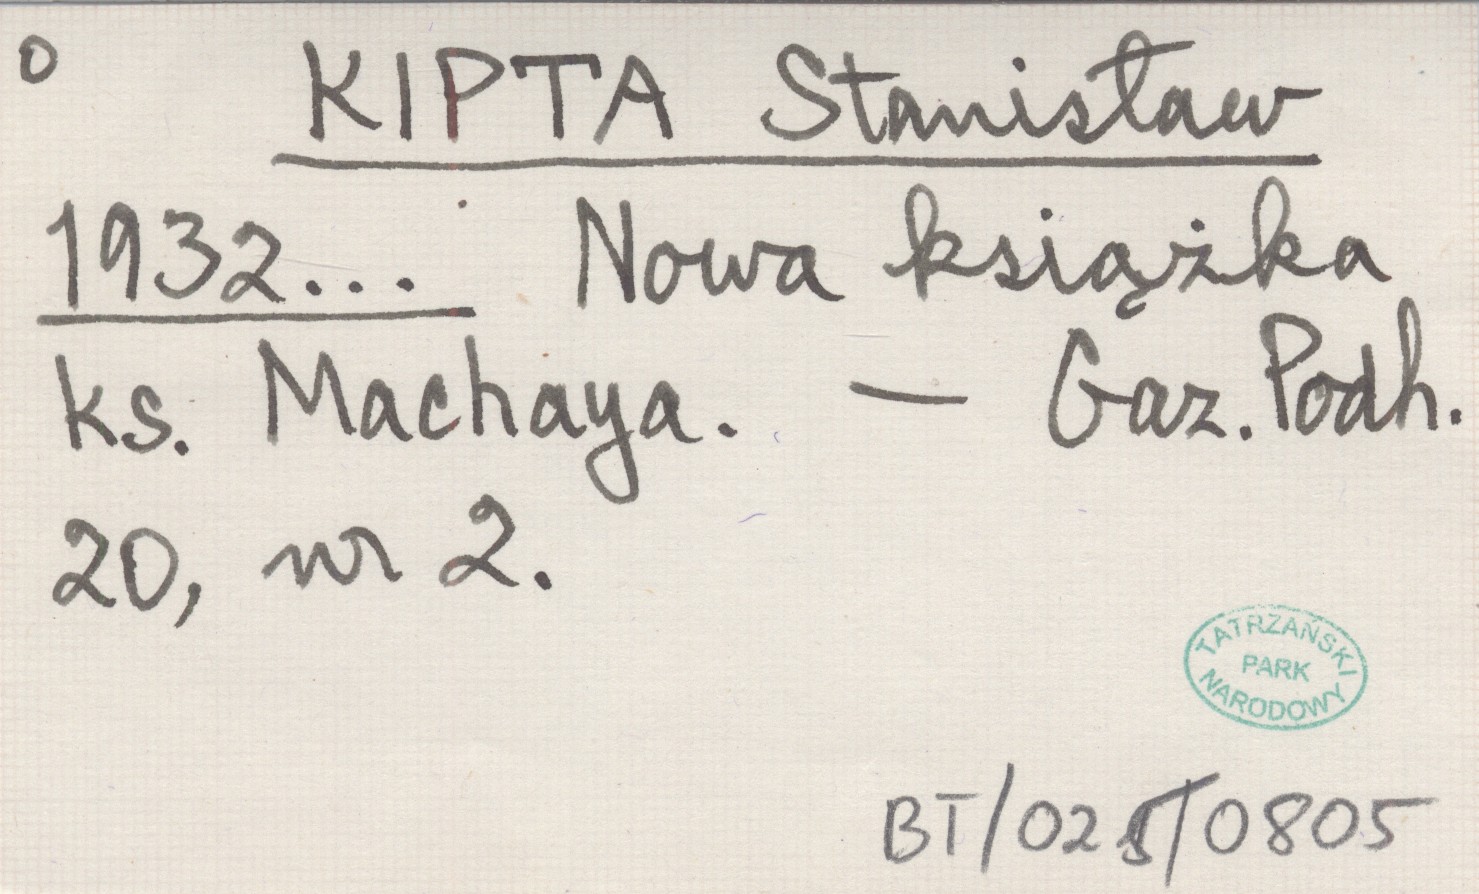 o KIPTA Stanisław
1932... Nowa książka
ks. Machaya. — Gaz. Podh.
20, nr 2.
TATRZAŃSKI
PARK
NARODOWY
BT/025/0805